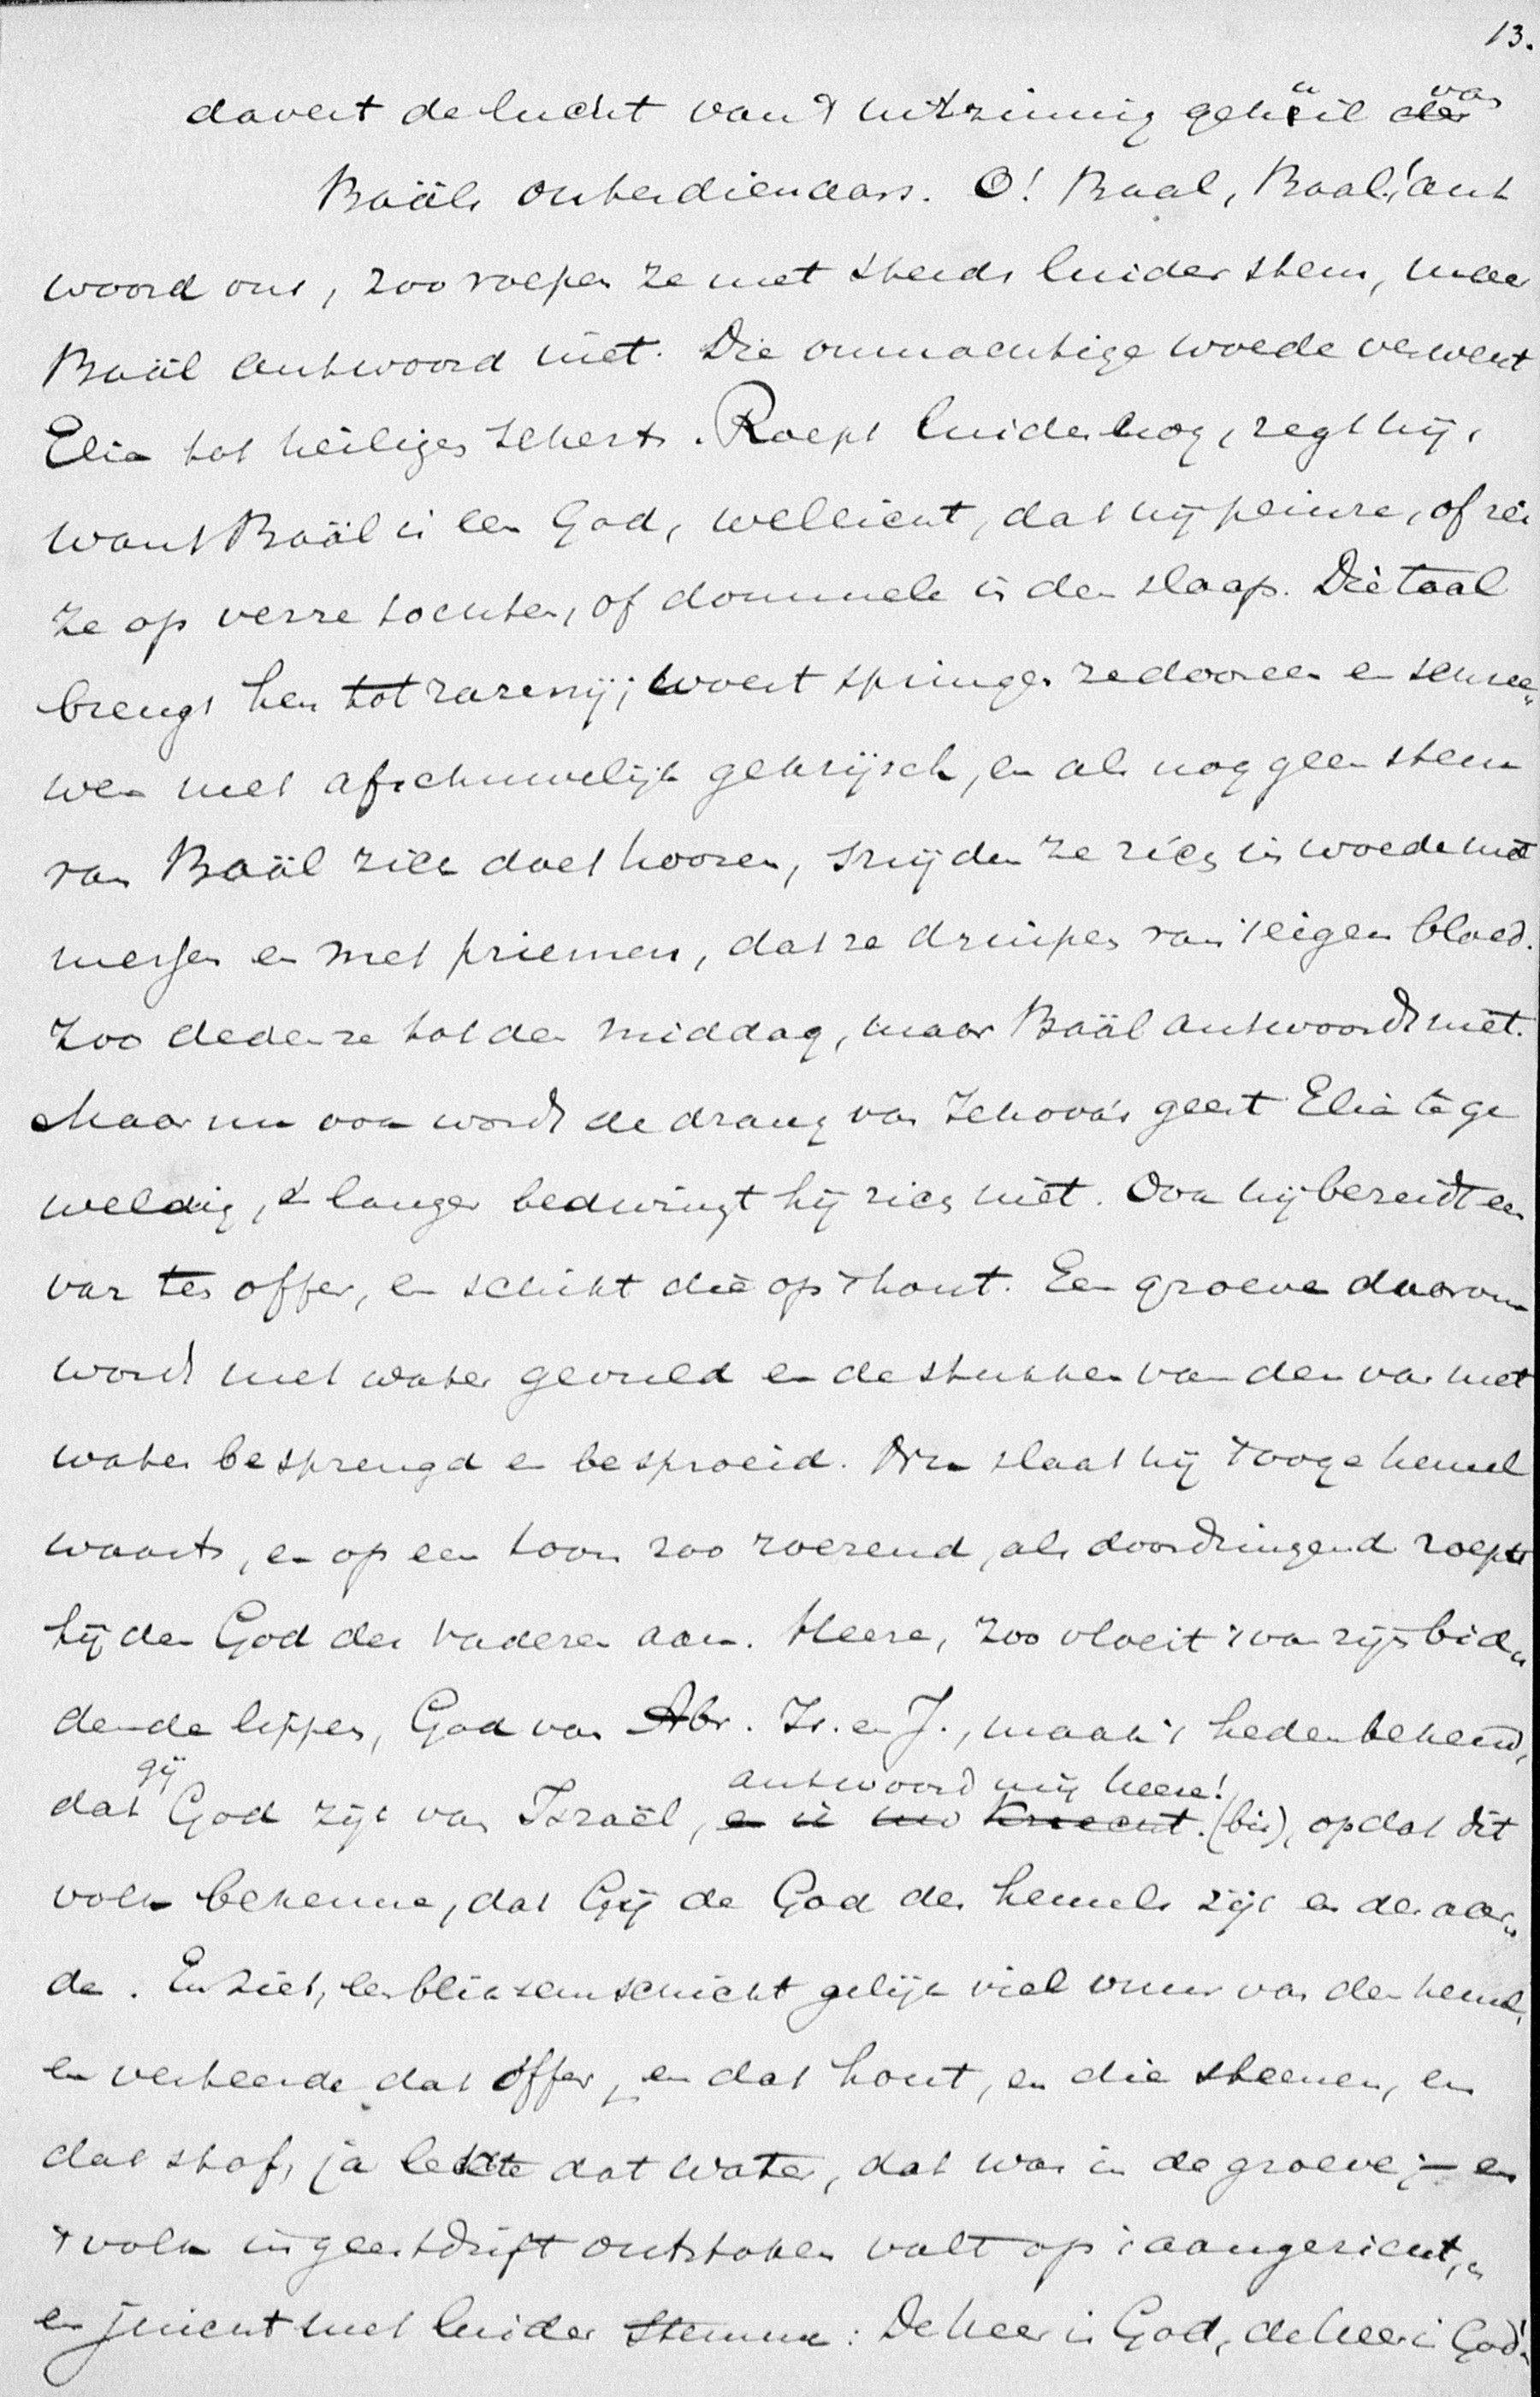 13.
davert de lucht van 't uitzinnig gehuil van
Baäls outerdienaars. O! Baal, Baal! ant
woord ons, zoo roepen ze met steeds luider stem, maar
Baäl antwoord niet. Die onmachtige woede verwekt
Elia tot heiligen scherts. Roept luider nog, zegt hij,
want Baäl is een God, wellicht, dat hij peinze, of rei
ze op verre tochten, of dommele in den slaap. Die taal
brengt hen tot razernij; woest springen ze dooreen en schree„
wen met afschuwelijk gekrijsch, en als nog geen stem
van Baäl zich doet hooren, snijden ze zich in woede met
messen en met priemen, dat ze druipen van 't eigen bloed.
Zoo deden ze tot den middag, maar Baäl antwoordt niet.
Maar nu ook wordt de drang van Jehova's geest Elia te ge
weldig, & langer bedwingt hij zich niet. Ook hij bereidt een
var ten offer, en schikt die op 't hout. Een groeve daarom
wordt met water gevuld en de stukken van den var met
water besprengd en besproeid. Dan slaat hij 't ooge hemel
waarts, en op een toon zoo roerend, als doordringend roept
hij den God der vaderen aan. Heere, zoo vloeit 't van zijn bid„
dende lippen, God van Abr. Is. en J., maak 't heden bekend,
gij antwoord mij heere!
dat God zijt van Israël, en ik uw knecht. (bis), opdat dit
volk bekenne, dat Gij de God des hemels zijt en der aar„
de. En ziet, een bliksemschicht gelijk viel vuur van den hemel,
en verteerde dat offer, en dat hout, en die steenen, en
dat stof, ja lekte dat water, dat was in de groeve; – en
't volk in geestdrift ontstoken valt op 't aangezicht,
en juicht met luider stemme: De heer is God, de heer is God!